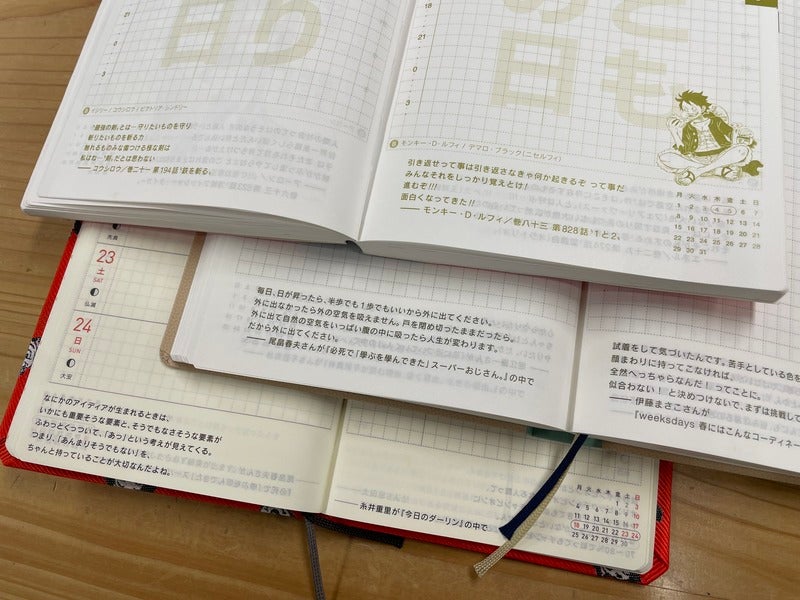 日
り
21
0
3
イジリー / コウシロウ / ビクトリア・シンドリー
「最強の剣」とは…守りたいものを守り
斬りたいものを斬る力
触れるものみな傷つける様な剣は
私はね…「剣」だとは思わない
―― コウシロウ/巻二十一 第194話“鉄を斬る。
18
21
0
3
の
日
と
も
モンキー・D・ルフィ / デマロ・ブラック(ニセルフィ)
引き返せって事は引き返さなきゃ何か起きるぞ って事だ
みんなそれをしっかり覚えとけ!
進むぞ!!!
面白くなってきた!!
―― モンキー・D・ルフィ/巻八十三 第828話“1と2。
月 火 水 木 金 土 日
1 2 3 4 5 6 7
8 9 10 11 12 13 14
15 16 17 18 19 20 21
22 23 24 25 26 27 28
29 30 31
先負
23
土
SAT
仏滅
24
日
SUN
大安
毎日、日が昇ったら、半歩でも1歩でもいいから外に出てください。
外に出なかったら外の空気を吸えません。戸を閉め切ったままだったら。
外に出て自然の空気をいっぱい腹の中に吸ったら人生が変わります。
だから外に出てください。
―― 尾畠春夫さんが『必死で「学ぶを学んできた」スーパーおじさん。』の中で
試着をして気づいたんです。苦手としている色を
顔まわりに持ってこなければ、
全然へっちゃらなんだ! ってことに。
似合わない! と決めつけないで、まずは挑戦して
―― 伊藤まさこさんが
『weeksdays 春にはこんなコーディネー
なにかのアイディアが生まれるときは、
いかにも重要そうな要素と、そうでもなさそうな要素が
ふわっとくっついて、「あっ」という考えが見えてくる。
つまり、「あんまりそうでもない」を、
ちゃんと持っていることが大切なんだよね。
―― 糸井重里が『今日のダーリン』の中で
月 火 水 木 金 土 日
1 2 3
4 5 6 7 8 9 10
11 12 13 14 15 16 17
18 19 20 21 22 23 24
25 26 27 28 29 30